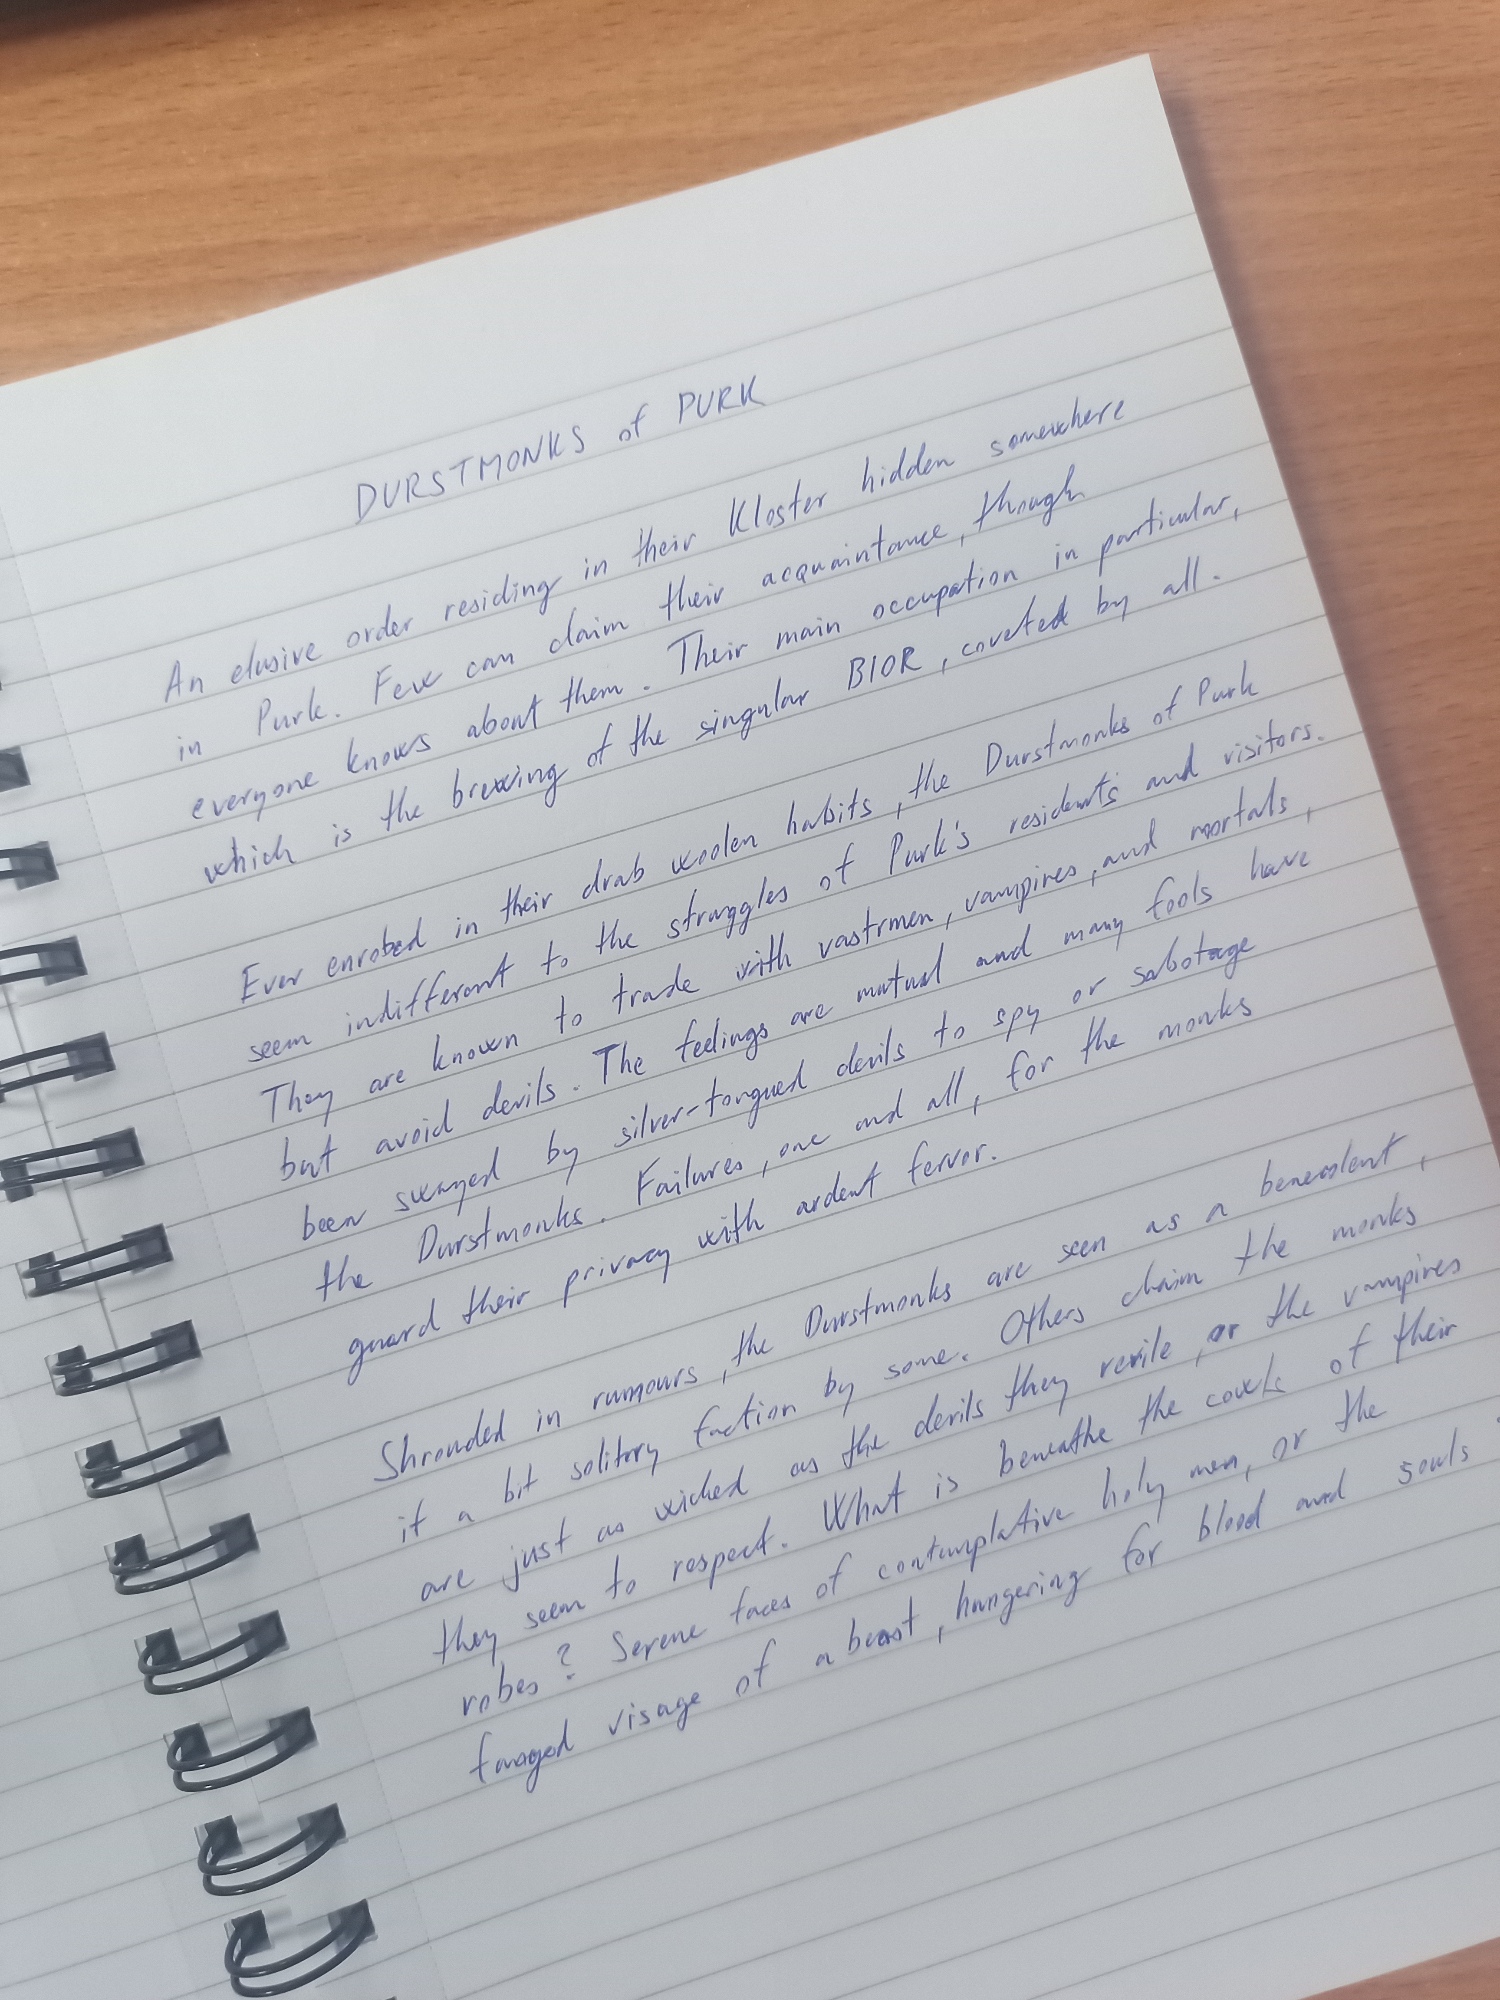 DURSTMONKS of PURK
An elusive order residing in their Kloster hidden somewhere
in Purk. Few can claim their acquaintance, though
everyone knows about them. Their main occupation in particular,
which is the brewing of the singular BIOR, coveted by all.
Ever enrobed in their drab woolen habits, the Durstmonks of Purk
seem indifferent to the struggles of Purk's residents and visitors.
They are known to trade with vastrmen, vampires, and mortals,
but avoid devils. The feelings are mutual and many fools have
been swayed by silver-tongued devils to spy or sabotage
the Durstmonks. Failures, one and all, for the monks
guard their privacy with ardent fervor.
Shrouded in rumours, the Durstmonks are seen as a benevolent,
if a bit solitory faction by some. Others claim the monks
are just as wicked as the devils they revile, or the vampires
they seem to respect. What is beneathe the cowls of their
robes? Serene faces of contemplative holy men, or the
fanged visage of a beast, hungering for blood and souls.